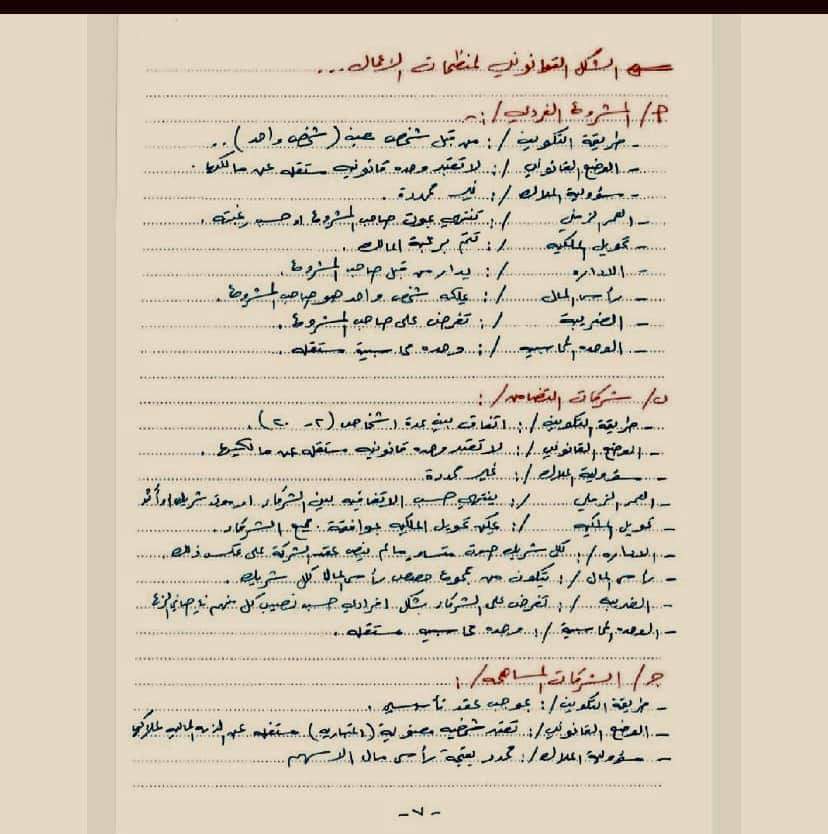 الشكل القانوني لمنظمات الاعمال ...
أ/ المشروع الفردي /:-
- طريقة التكوين /: من قبل شخص معين (شخص واحد) ..
- الوضع القانوني /: لا تعتبر وحده قانونيه مستقله عن مالكها .
- مسؤولية الملاك /: غير محددة .
- العمر الزمني /: تنتهي بموت صاحب المشروع او حسب رغبته .
- تحويل الملكيه /: تتم برغبة المالك .
- الاداره /: يدار من قبل صاحب المشروع .
- رأس المال /: يملكه شخص واحد هو صاحب المشروع .
- الضريبة /: تفرض على صاحب المشروع .
- الوحده المحاسبيه /: وحده محاسبية مستقله .
ب/ شركات التضامن /:
- طريقة التكوين /: اتفاق بين عدة اشخاص (٢-٢٠) .
- الوضع القانوني /: لا تعتبر وحده قانونيه مستقله عن مالكيها .
- مسؤولية الملاك /: غير محددة
- العمر الزمني /: ينتهي حسب الاتفاقيه بين الشركاء او موت شريك او أكثر
- تحويل الملكيه /: يمكن تحويل الملكيه بموافقة جميع الشركاء .
- الاداره /: لكل شريك حصة متساويه مالم ينص عقد الشركة على عكس ذلك .
- رأس المال /: يتكون من مجموع حصص رأس المال لكل شريك .
- الضريبه /: تفرض على الشركاء بشكل افرادي حسب نصيب كل منهم
- الوحده المحاسبية /: وحده محاسبيه مستقله .
ج/ الشركات المساهمه /:
- طريقة التكوين /: بموجب عقد تأسيسي .
- الوضع القانوني /: تعتبر شخصيه معنوية (اعتباريه) مستقله عن الذمه الماليه
- مسؤولية الملاك /: محدد بقيمة رأس مال الاسهم
-٧-